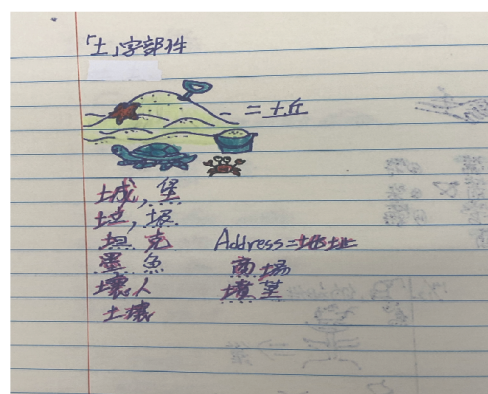 「土」字部件
= 土丘
城, 堡
垃, 圾
坦克
墨魚
壞人
土壤
Address=地址
商場
墳墓